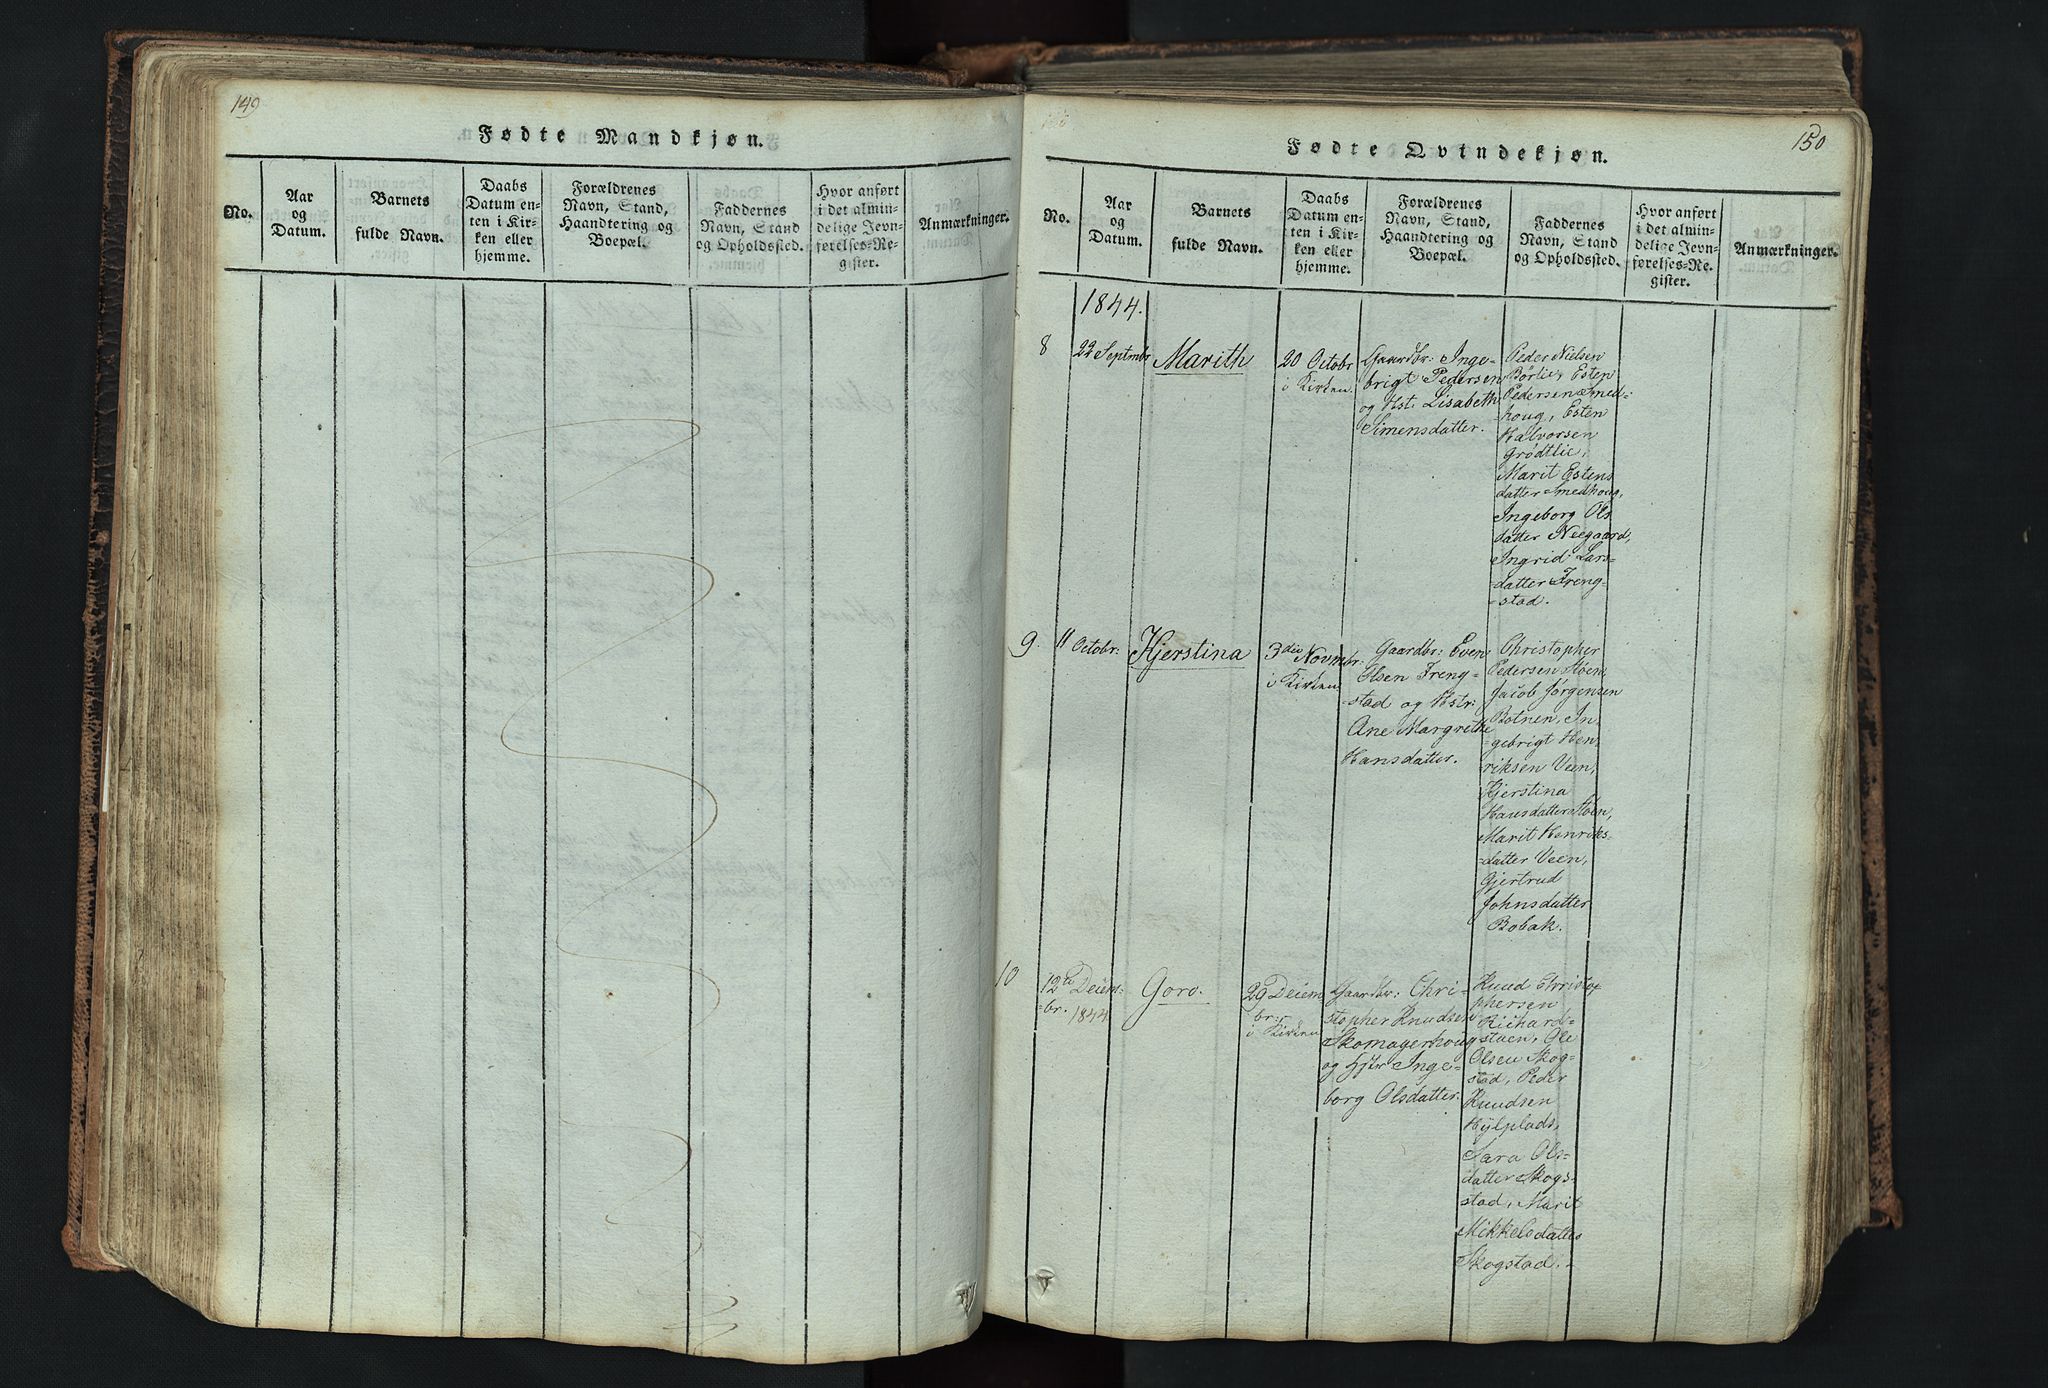 149
Fødte Mandkjøn.
No.
Aar
og
Datum.
Barnets
fulde Navn.
Daabs
Datum en-
ten i Kir-
ken eller
hjemme.
Forældrenes
Navn, Stand,
Haandtering og
Boepæl.
Faddernes
Navn, Stand
og Opholdssted.
Hvor anført
i det almin-
delige Jevn-
førelses-Re-
gister.
Anmærkninger.
150
Fødte Qvindekjøn.
No.
Aar
og
Datum.
Barnets
fulde Navn.
Daabs
Datum en-
ten i Kir-
ken eller
hjemme.
Forældrenes
Navn, Stand,
Haandtering og
Boepæl.
Faddernes
Navn, Stand
og Opholdssted.
Hvor anført
i det almin-
delige Jevn-
førelses-Re-
gister.
Anmærkninger.
1844.
8
22 Septmbr
Marith
20 Octobr
i Kirken
Gaardbr: Inge-
brigt Pedersen
og Hst. Lisabeth
Simensdatter.
Peder Nielsen
Børlie, Esten
Pedersen Smed-
houg, Esten
Halvorsen
Grødtlie,
Marit Estens
datter Smedhoug,
Ingeborg Ols
datter Neegaard,
Ingrid Lars-
datter Freng-
-stad.
9.
11 Octobr:
Kjerstina
3die Novmbr:
i Kirken
Gaardbr: Even
Olsen Freng-
-stad og Hstr:
Ane Margrethe
Hansdatter.
Christopher
Pedersen Støen,
Jacob Jørgensen
Botnen, In-
-gebrigt Hen
riksen Veen,
Kjerstina
Hansdatter Støen,
Marit Henriks-
-datter Veen,
Gjertrud
Johnsdatter
Bobak.
10
12te Deiem-
-br. 1844
Goro.
29 Deiem
br:
i Kirken
Gaardbr: Chri-
stopher Knudsen
Skomagerhoug
og Hstr Inge-
borg Olsdatter.
Knud Christo-
phersen
Richard-
stuen, Ole
Olsen Skog-
stad, Peder
Knudsen
Hylplads,
Sara Ols-
datter Skogs-
stad, Marit
Mikkelsdatter
Skogstad.